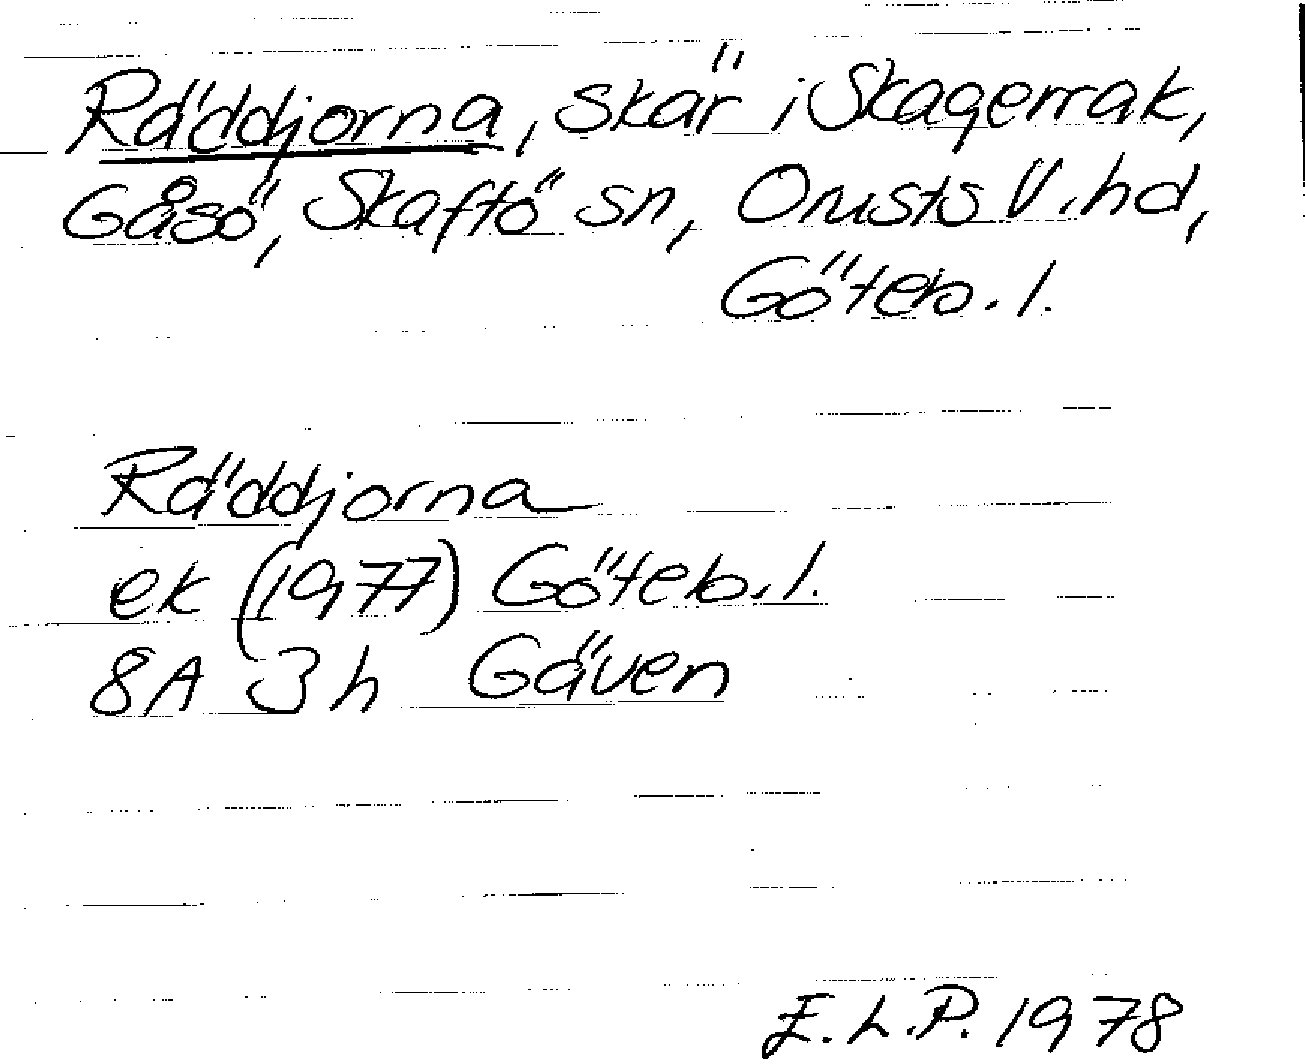 Räddjorna, skär i Skagerrak,
Gåsö, Skaftö sn, Orusts V. hd,
Göteb. l.
Räddjorna
ek (1977) Göteb. l.
8A 3h Gäven
E.L.P. 1978